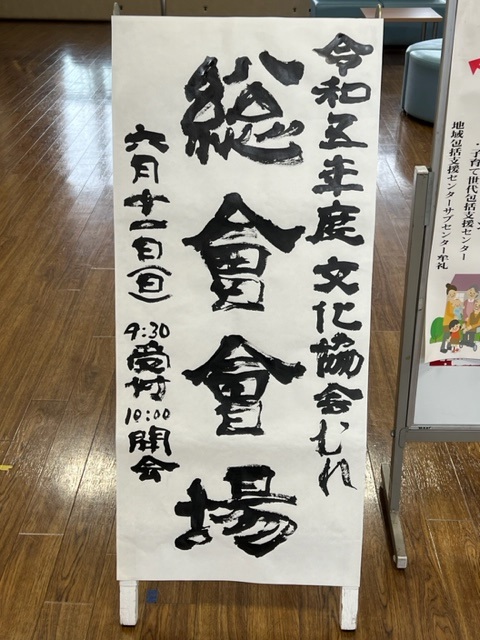 令和五年度 文化協会むれ
総會會場
六月十一日(日) 9:30受付 10:00開会
・子育て世代包括支援センター
地域包括支援センターサブセンター牟礼